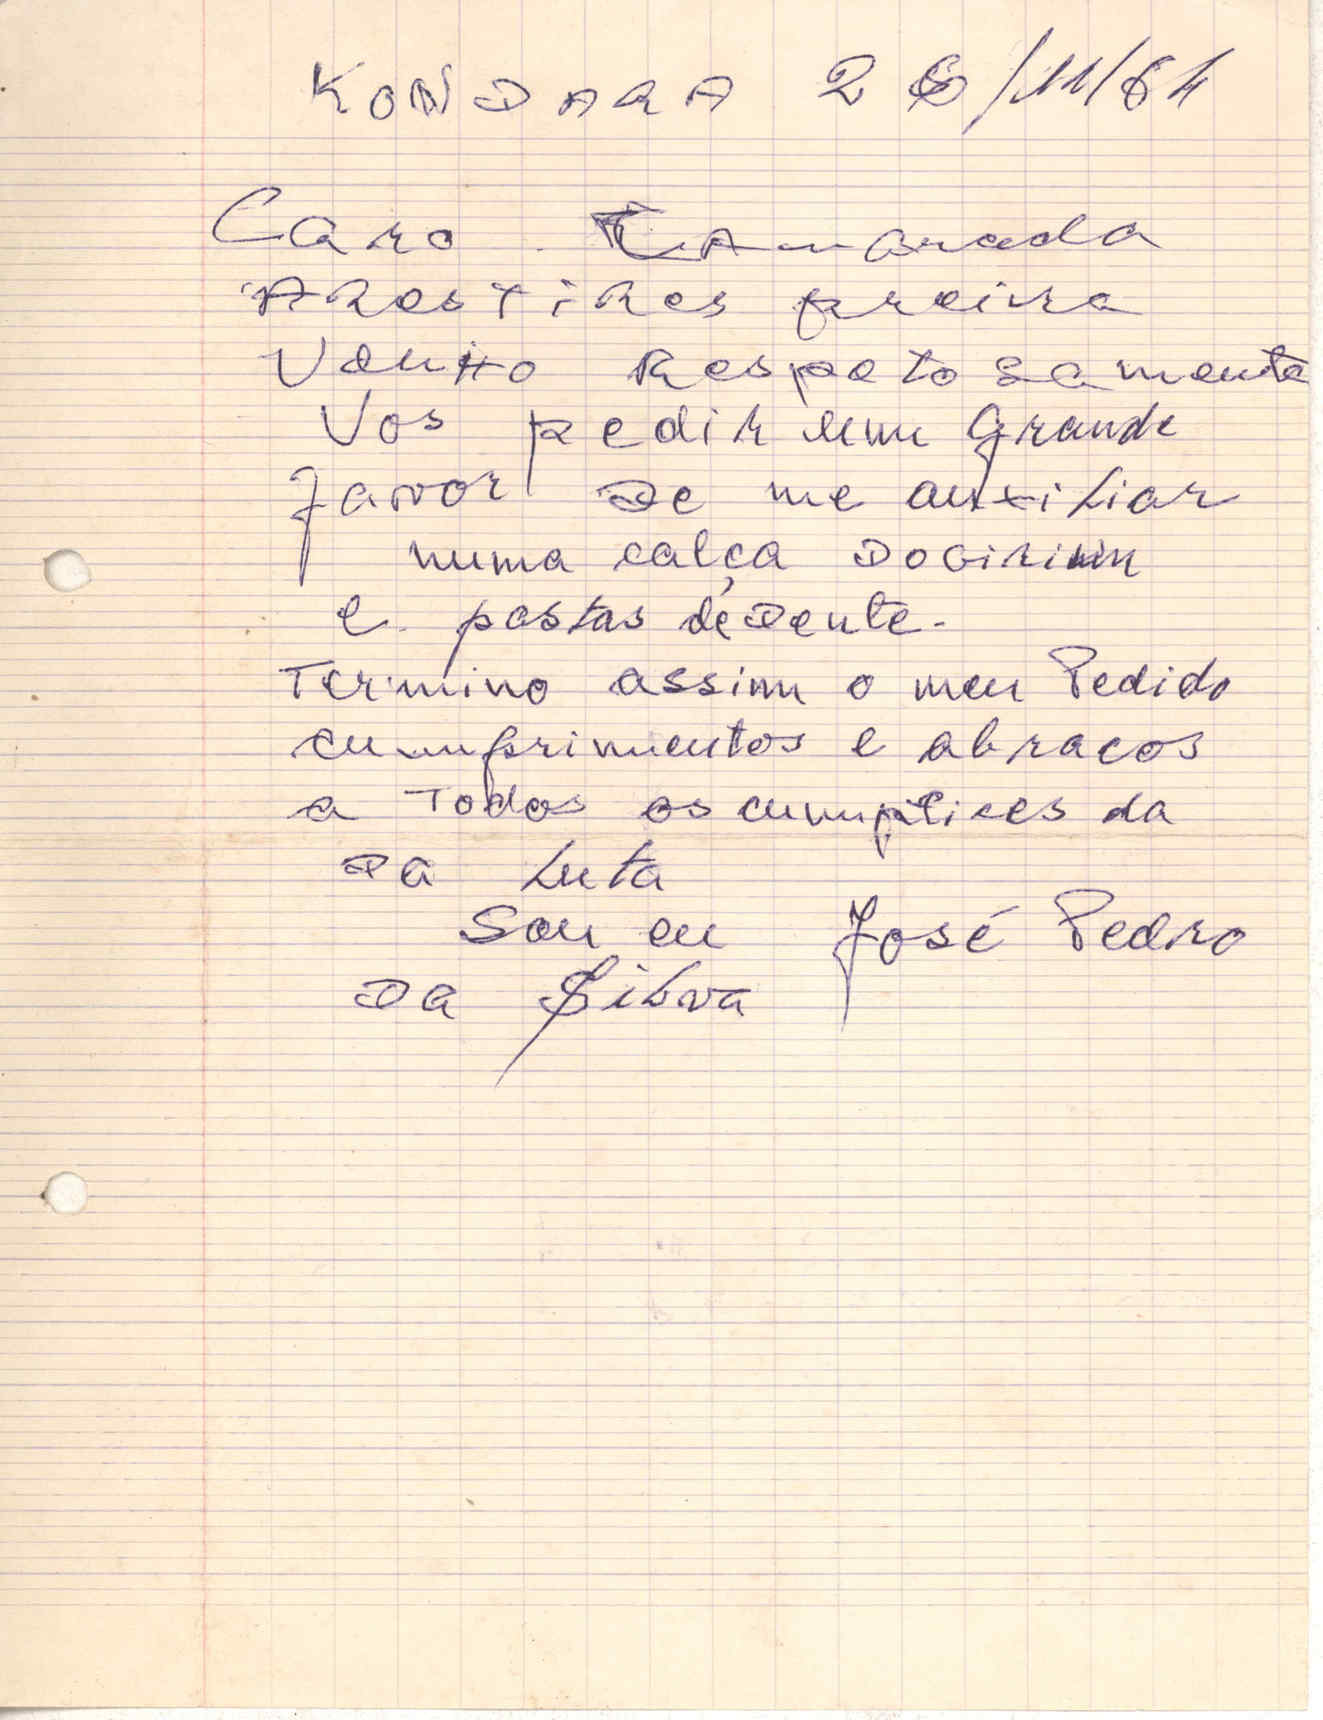 KONDARA 26/11/64
Caro Camarada
Arestires preira
Venho Respetosamente
Vos pedir um Grande
favor De me auxiliar
numa calça
e pastas de Dente.
Termino assim o meu Pedido
cumprimentos e abracos
a Todos os cumplices da
Da Luta
Sou eu José Pedro
Da Silva